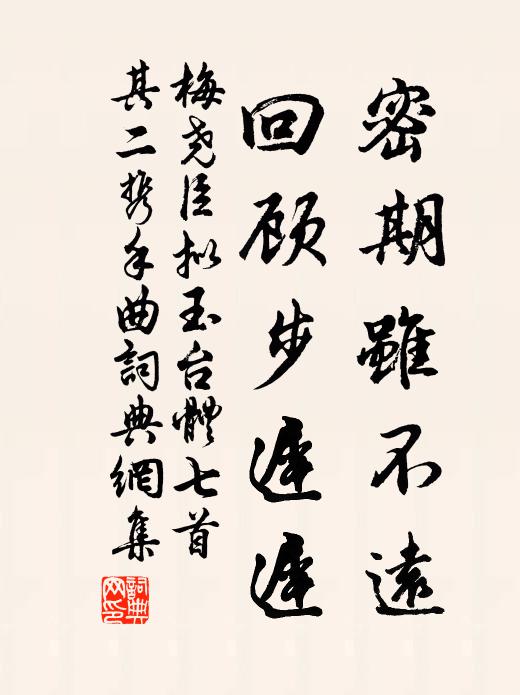 密期雖不遠
回顾步遲遲
梅尧臣拟玉台體七首
其二携手曲詞典網集
詞典網印